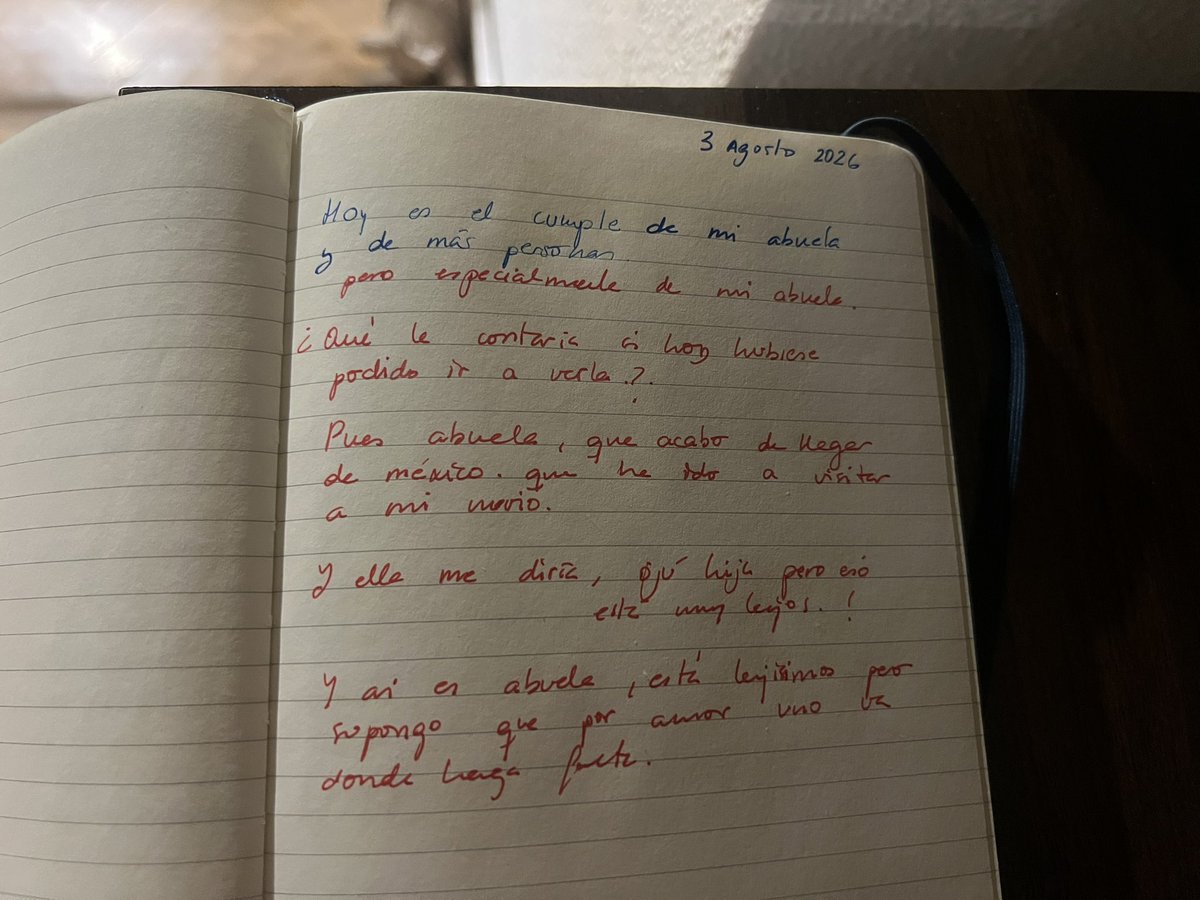 3 Agosto 2026
Hoy es el cumple de mi abuela
y de más personas
pero especialmente de mi abuela.
¿Qué le contaría si hoy hubiese
podido ir a verla?
Pues abuela, que acabo de llegar
de méxico. que he ido a visitar
a mi novio.
Y ella me diría, ojú hija pero eso
está muy lejos.!
Y así es abuela, está lejísimos pero
supongo que por amor uno va
donde haga falta.